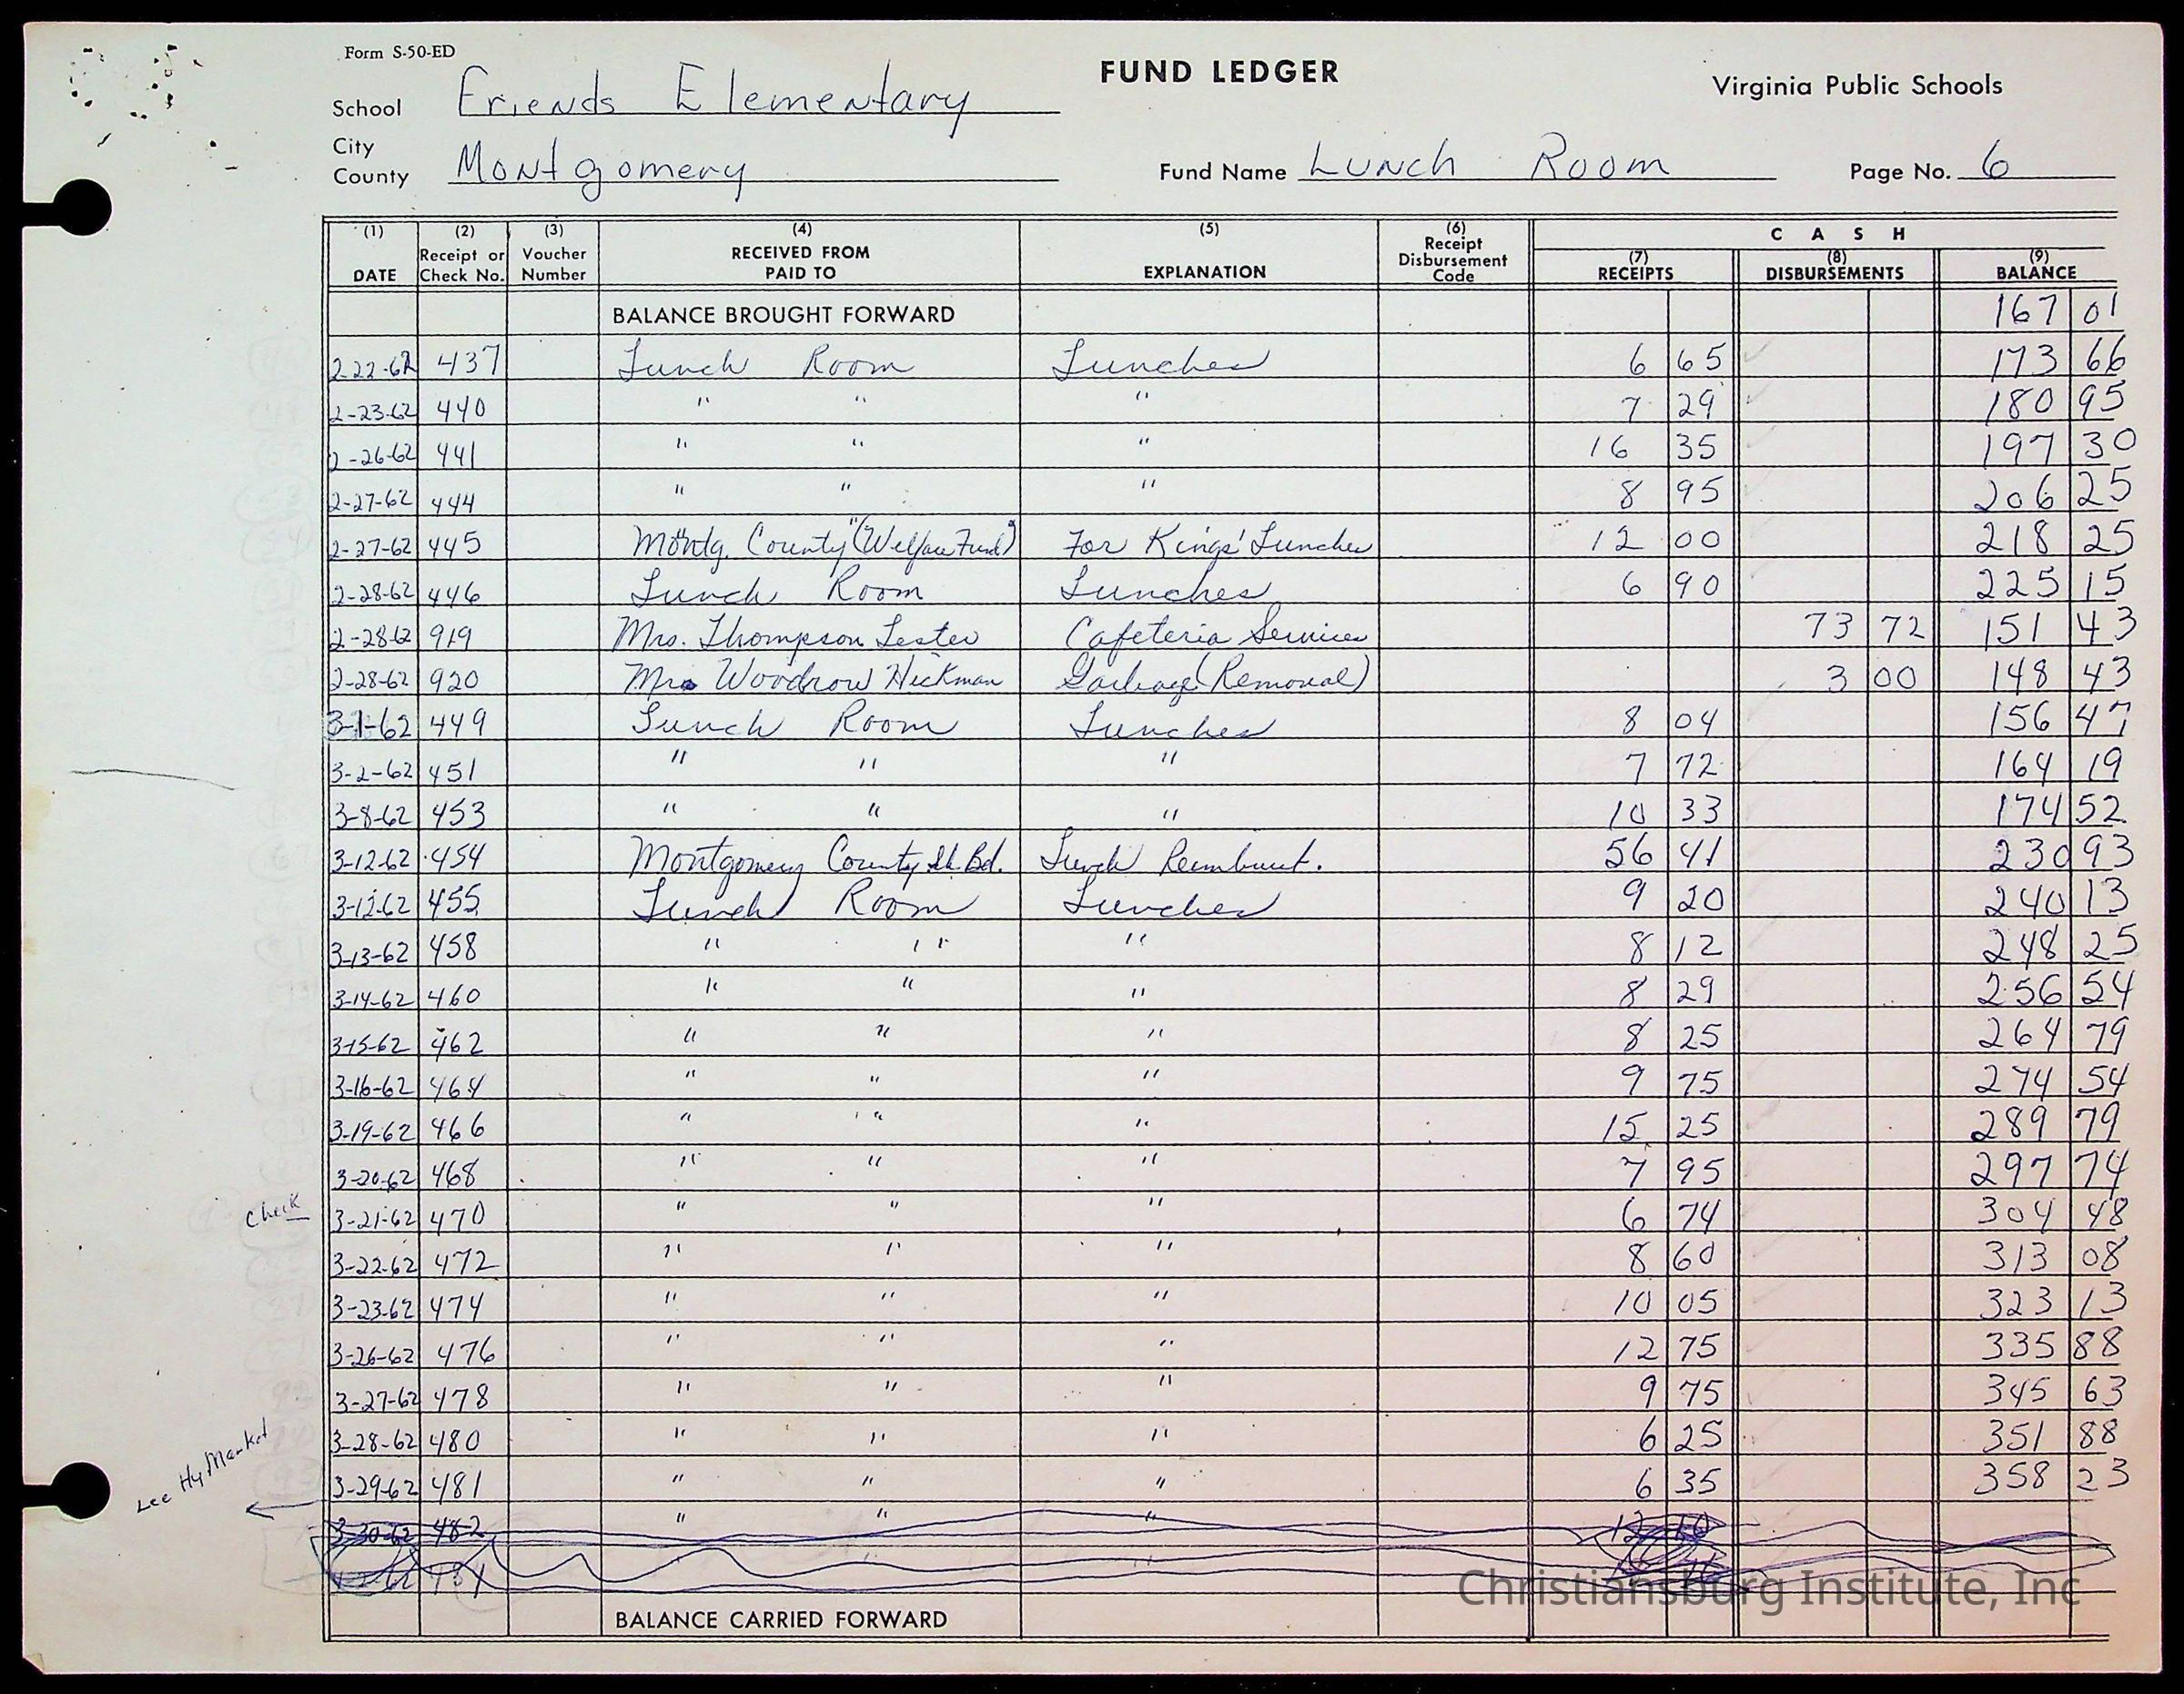 Form S-50-ED
FUND LEDGER
Virginia Public Schools
School Friends Elementary
City
County Montgomery
Fund Name Lunch Room
Page No. 6
(1) DATE (2) Receipt or Check No. (3) Voucher Number (4) RECEIVED FROM PAID TO (5) EXPLANATION (6) Receipt Disbursement Code CASH (7) RECEIPTS (8) DISBURSEMENTS (9) BALANCE
BALANCE BROUGHT FORWARD 167 01
2-22-62 437 Lunch Room Lunches 6 65 173 66
2-23-62 440 " " " 7 29 180 95
2-26-62 441 " " " 16 35 197 30
2-27-62 444 " " " 8 95 206 25
2-27-62 445 Montg. County "(Welfare Fund)" For Kings' Lunches 12 00 218 25
2-28-62 446 Lunch Room Lunches 6 90 225 15
2-28-62 919 Mrs. Thompson Lester Cafeteria Services 73 72 151 43
2-28-62 920 Mr. Woodrow Hickman Garbage (Removal) 3 00 148 43
3-1-62 449 Lunch Room Lunches 8 04 156 47
3-2-62 451 " " " 7 72 164 19
3-8-62 453 " " " 10 33 174 52
3-12-62 454 Montgomery County Sch. Bd. Lunch Reimburst. 56 41 230 93
3-12-62 455 Lunch Room Lunches 9 20 240 13
3-13-62 458 " " " 8 12 248 25
3-14-62 460 " " " 8 29 256 54
3-15-62 462 " " " 8 25 264 79
3-16-62 464 " " " 9 75 274 54
3-19-62 466 " " " 15 25 289 79
3-20-62 468 " " " 7 95 297 74
Check 3-21-62 470 " " " 6 74 304 48
3-22-62 472 " " " 8 60 313 08
3-23-62 474 " " " 10 05 323 13
3-26-62 476 " " " 12 75 335 88
3-27-62 478 " " " 9 75 345 63
3-28-62 480 " " " 6 25 351 88
3-29-62 481 " " " 6 35 358 23
Lee Hy Market
3-30-62 482 " " " 12 10
BALANCE CARRIED FORWARD
Christiansburg Institute, Inc